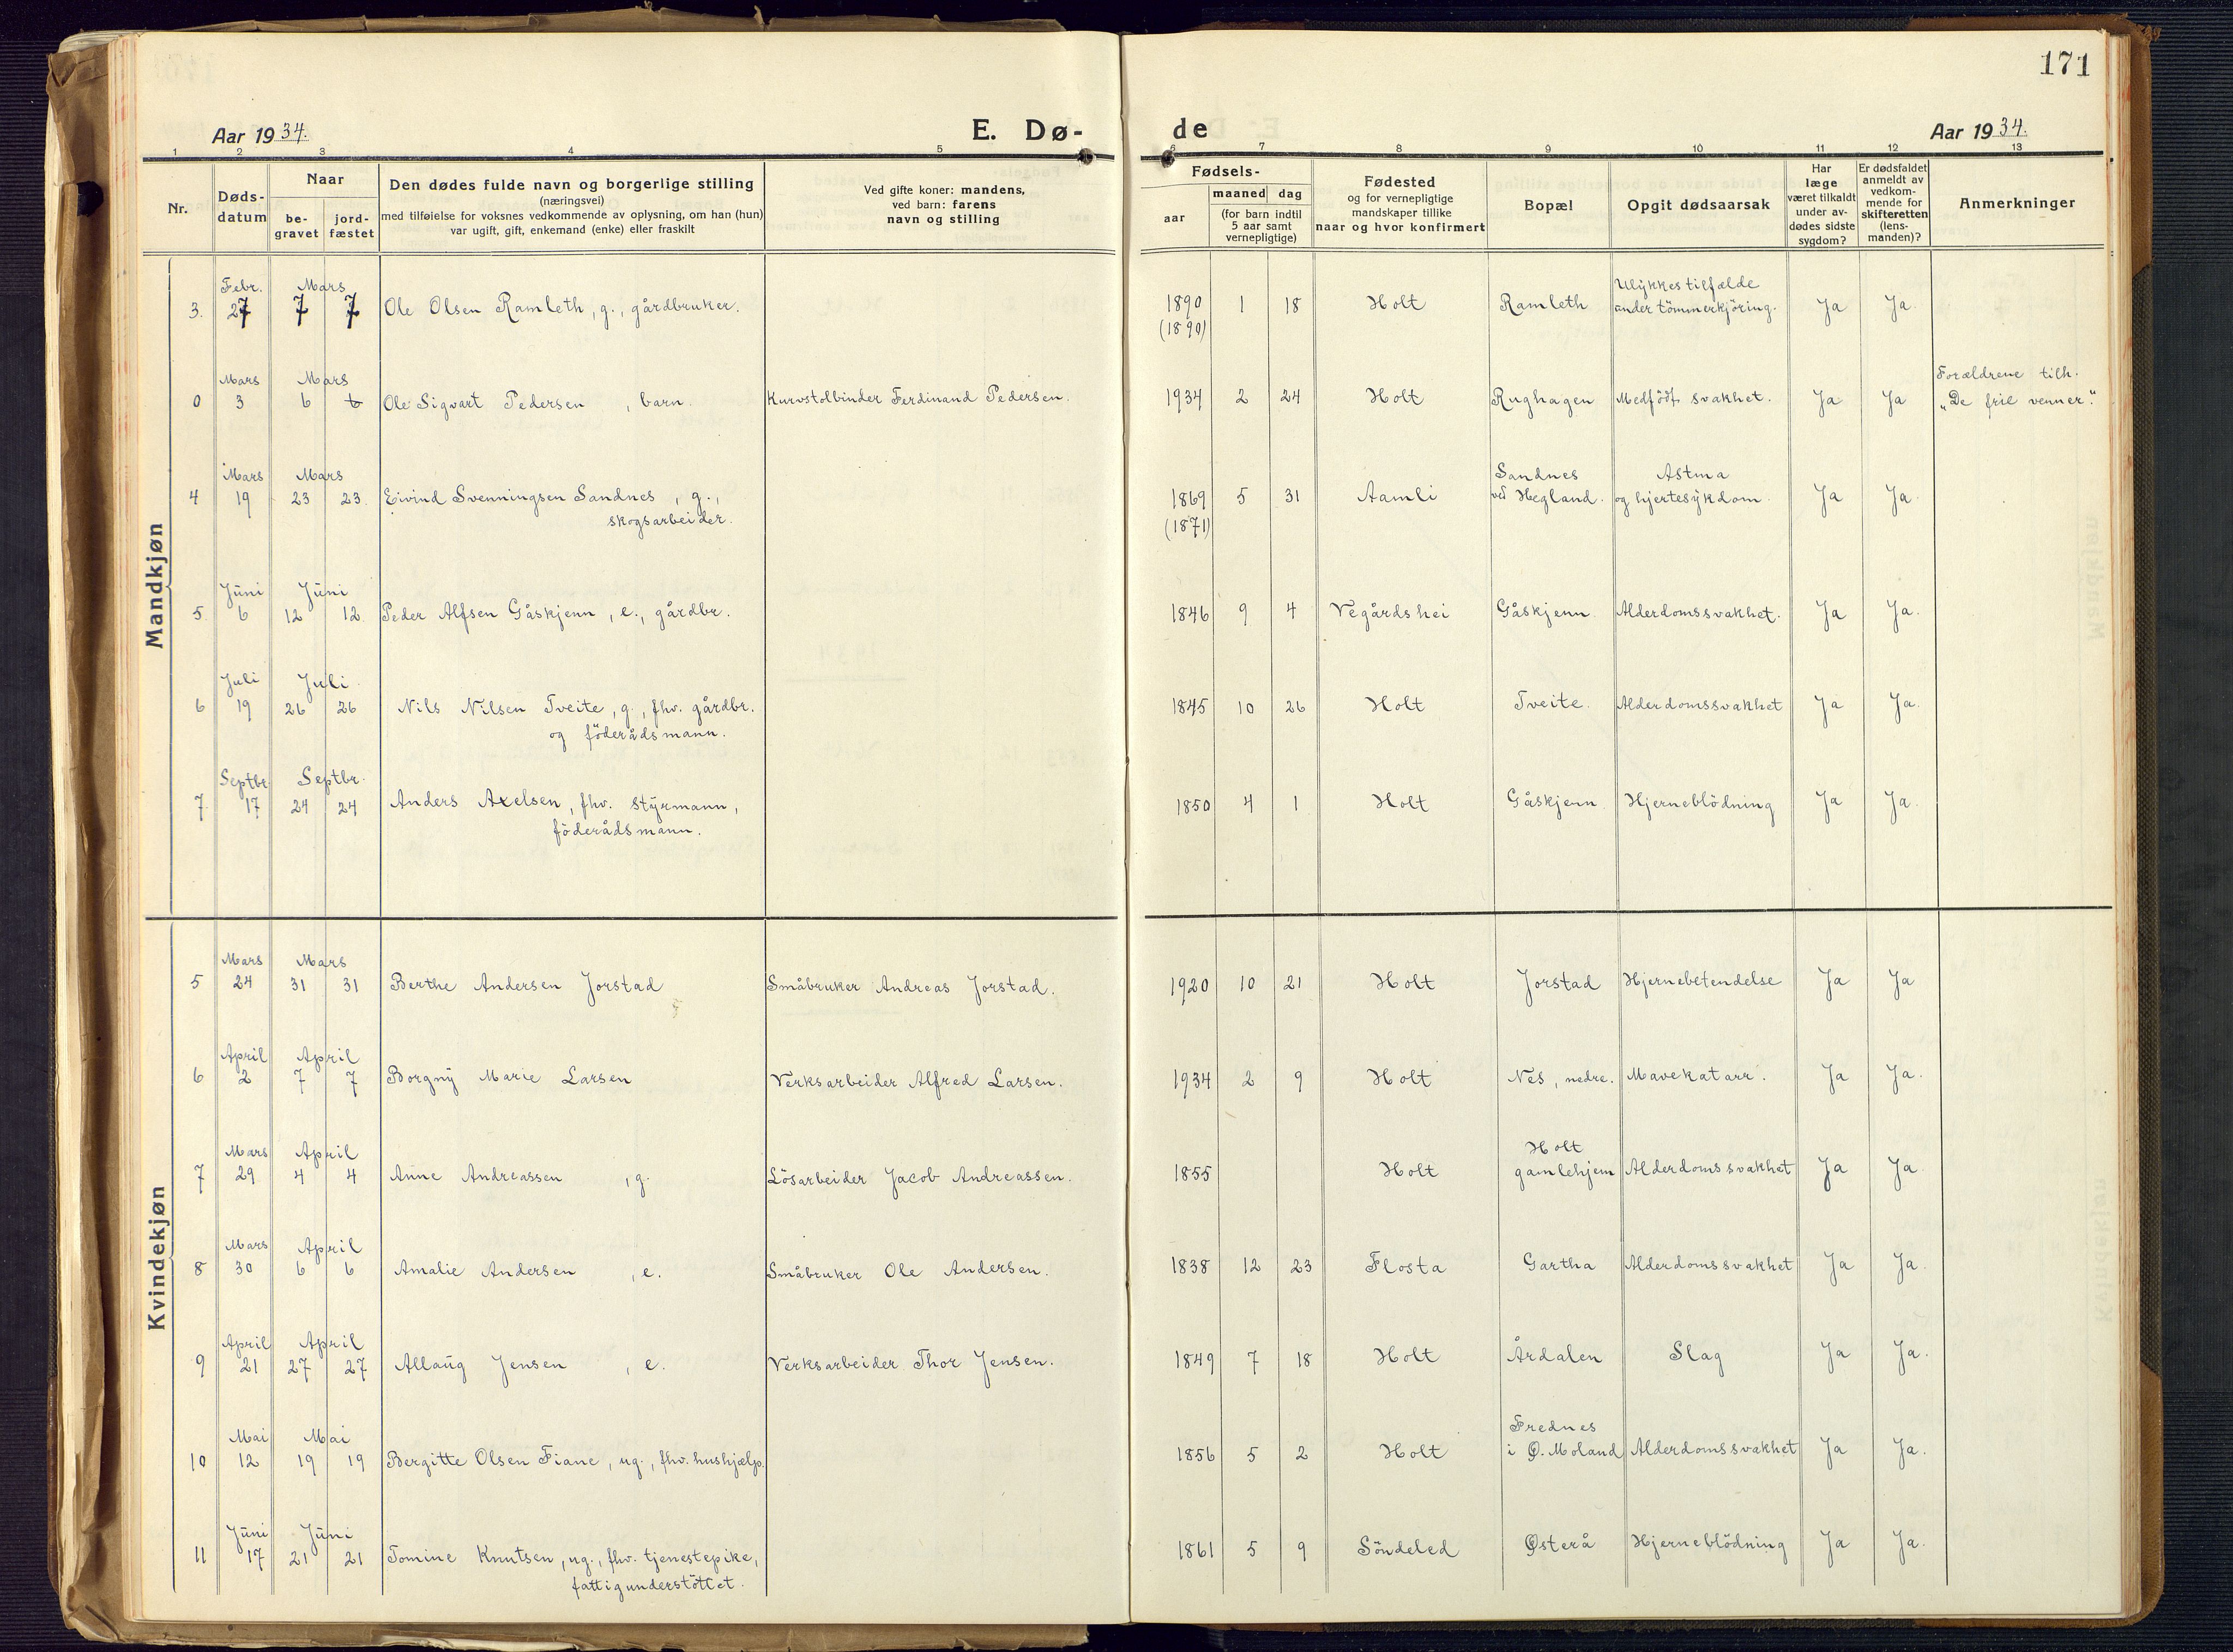 171
Aar 1934.
E. Dø-
de
Aar 1934.
1 2 3 4 5 6 7 8 9 10 11 12 13
Nr.
Døds-
datum
Naar
be-
gravet
jord-
fæstet
Den dødes fulde navn og borgerlige stilling
(næringsvei)
med tilføielse for voksnes vedkommende av oplysning, om han (hun)
var ugift, gift, enkemand (enke) eller fraskilt
Ved gifte koner: mandens,
ved barn: farens
navn og stilling
Fødsels-
aar
maaned dag
(for barn indtil
5 aar samt
vernepligtige)
Fødested
og for vernepligtige
mandskaper tillike
naar og hvor konfirmert
Bopæl
Opgit dødsaarsak
Har
læge
været tilkaldt
under av-
dødes sidste
sygdom?
Er dødsfaldet
anmeldt av
vedkom-
mende for
skifteretten
(lens-
manden)?
Anmerkninger
Mandkjøn
Febr. Mars Ulykkestilfælde
3. 27 7 7 Ole Olsen Ramleth, g., gårdbruker. 1890 1 18 Holt Ramleth under tömmerkjöring. Ja Ja
(1890)
Mars Mars Forældrene tilh.
0 3 6 6 Ole Sigvart Pedersen, barn. Kurvstolbinder Ferdinand Pedersen. 1934 2 24 Holt Rughagen Medfödt svakhet. Ja Ja „De frie venner."
Mars Mars Sandnes Astma
4 19 23 23. Eivind Svenningsen Sandnes, g., 1869 5 31 Aamli ved Hegland. og hjertesykdom. Ja Ja
skogsarbeider. (1871)
Juni Juni
5 6 12 12. Peder Alfsen Gåskjenn, e., gårdbr. 1846 9 4 Vegårdshei Gåskjenn Alderdomssvakhet. Ja Ja.
Juli Juli
6 19 26 26 Nils Nilsen Tveite, g., fhv. gårdbr. 1845 10 26 Holt Tveite. Alderdomssvakhet Ja Ja.
og föderådsmann.
Septbr. Septbr.
7. 17 24 24 Anders Axelsen, fhv. styrmann, 1850 4 1 Holt Gåskjenn Hjerneblödning Ja Ja.
föderådsmann.
Kvindekjøn
Mars Mars
5 24 31 31 Berthe Andersen Jorstad Småbruker Andreas Jorstad. 1920 10 21 Holt Jorstad Hjernebetendelse Ja Ja
April April
6 2 7 7 Borgny Marie Larsen Verksarbeider Alfred Larsen. 1934 2 9 Holt Nes, nedre. Mavekatarr. Ja Ja.
Mars April Holt
7 29 4 4 Anne Andreassen, g. Lösarbeider Jacob Andreassen. 1855 Holt gamlehjem Alderdomssvakhet Ja Ja.
Mars April
8 30 6 6 Amalie Andersen, e. Småbruker Ole Andersen. 1838 12 23 Flosta Gartha Alderdomssvakhet Ja Ja.
April April
9 21 27 27 Allaug Jensen, e. Verksarbeider Thor Jensen. 1849 7 18 Holt Årdalen Slag Ja Ja.
Mai Mai Frednes
10 12 19 19 Bergitte Olsen Fiane, ug., fhv. hushjælp. 1856 5 2 Holt i Ø. Moland Alderdomssvakhet Ja Ja.
Juni Juni
11 17 21 21 Tomine Knutsen, ug., fhv. tjenestepike, 1861 5 9 Söndeled Østerå Hjerneblödning Ja Ja.
fattigunderstöttet.